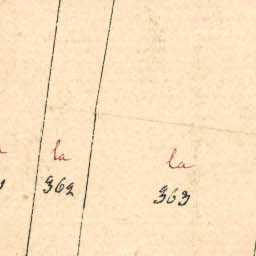 la
362
la
363